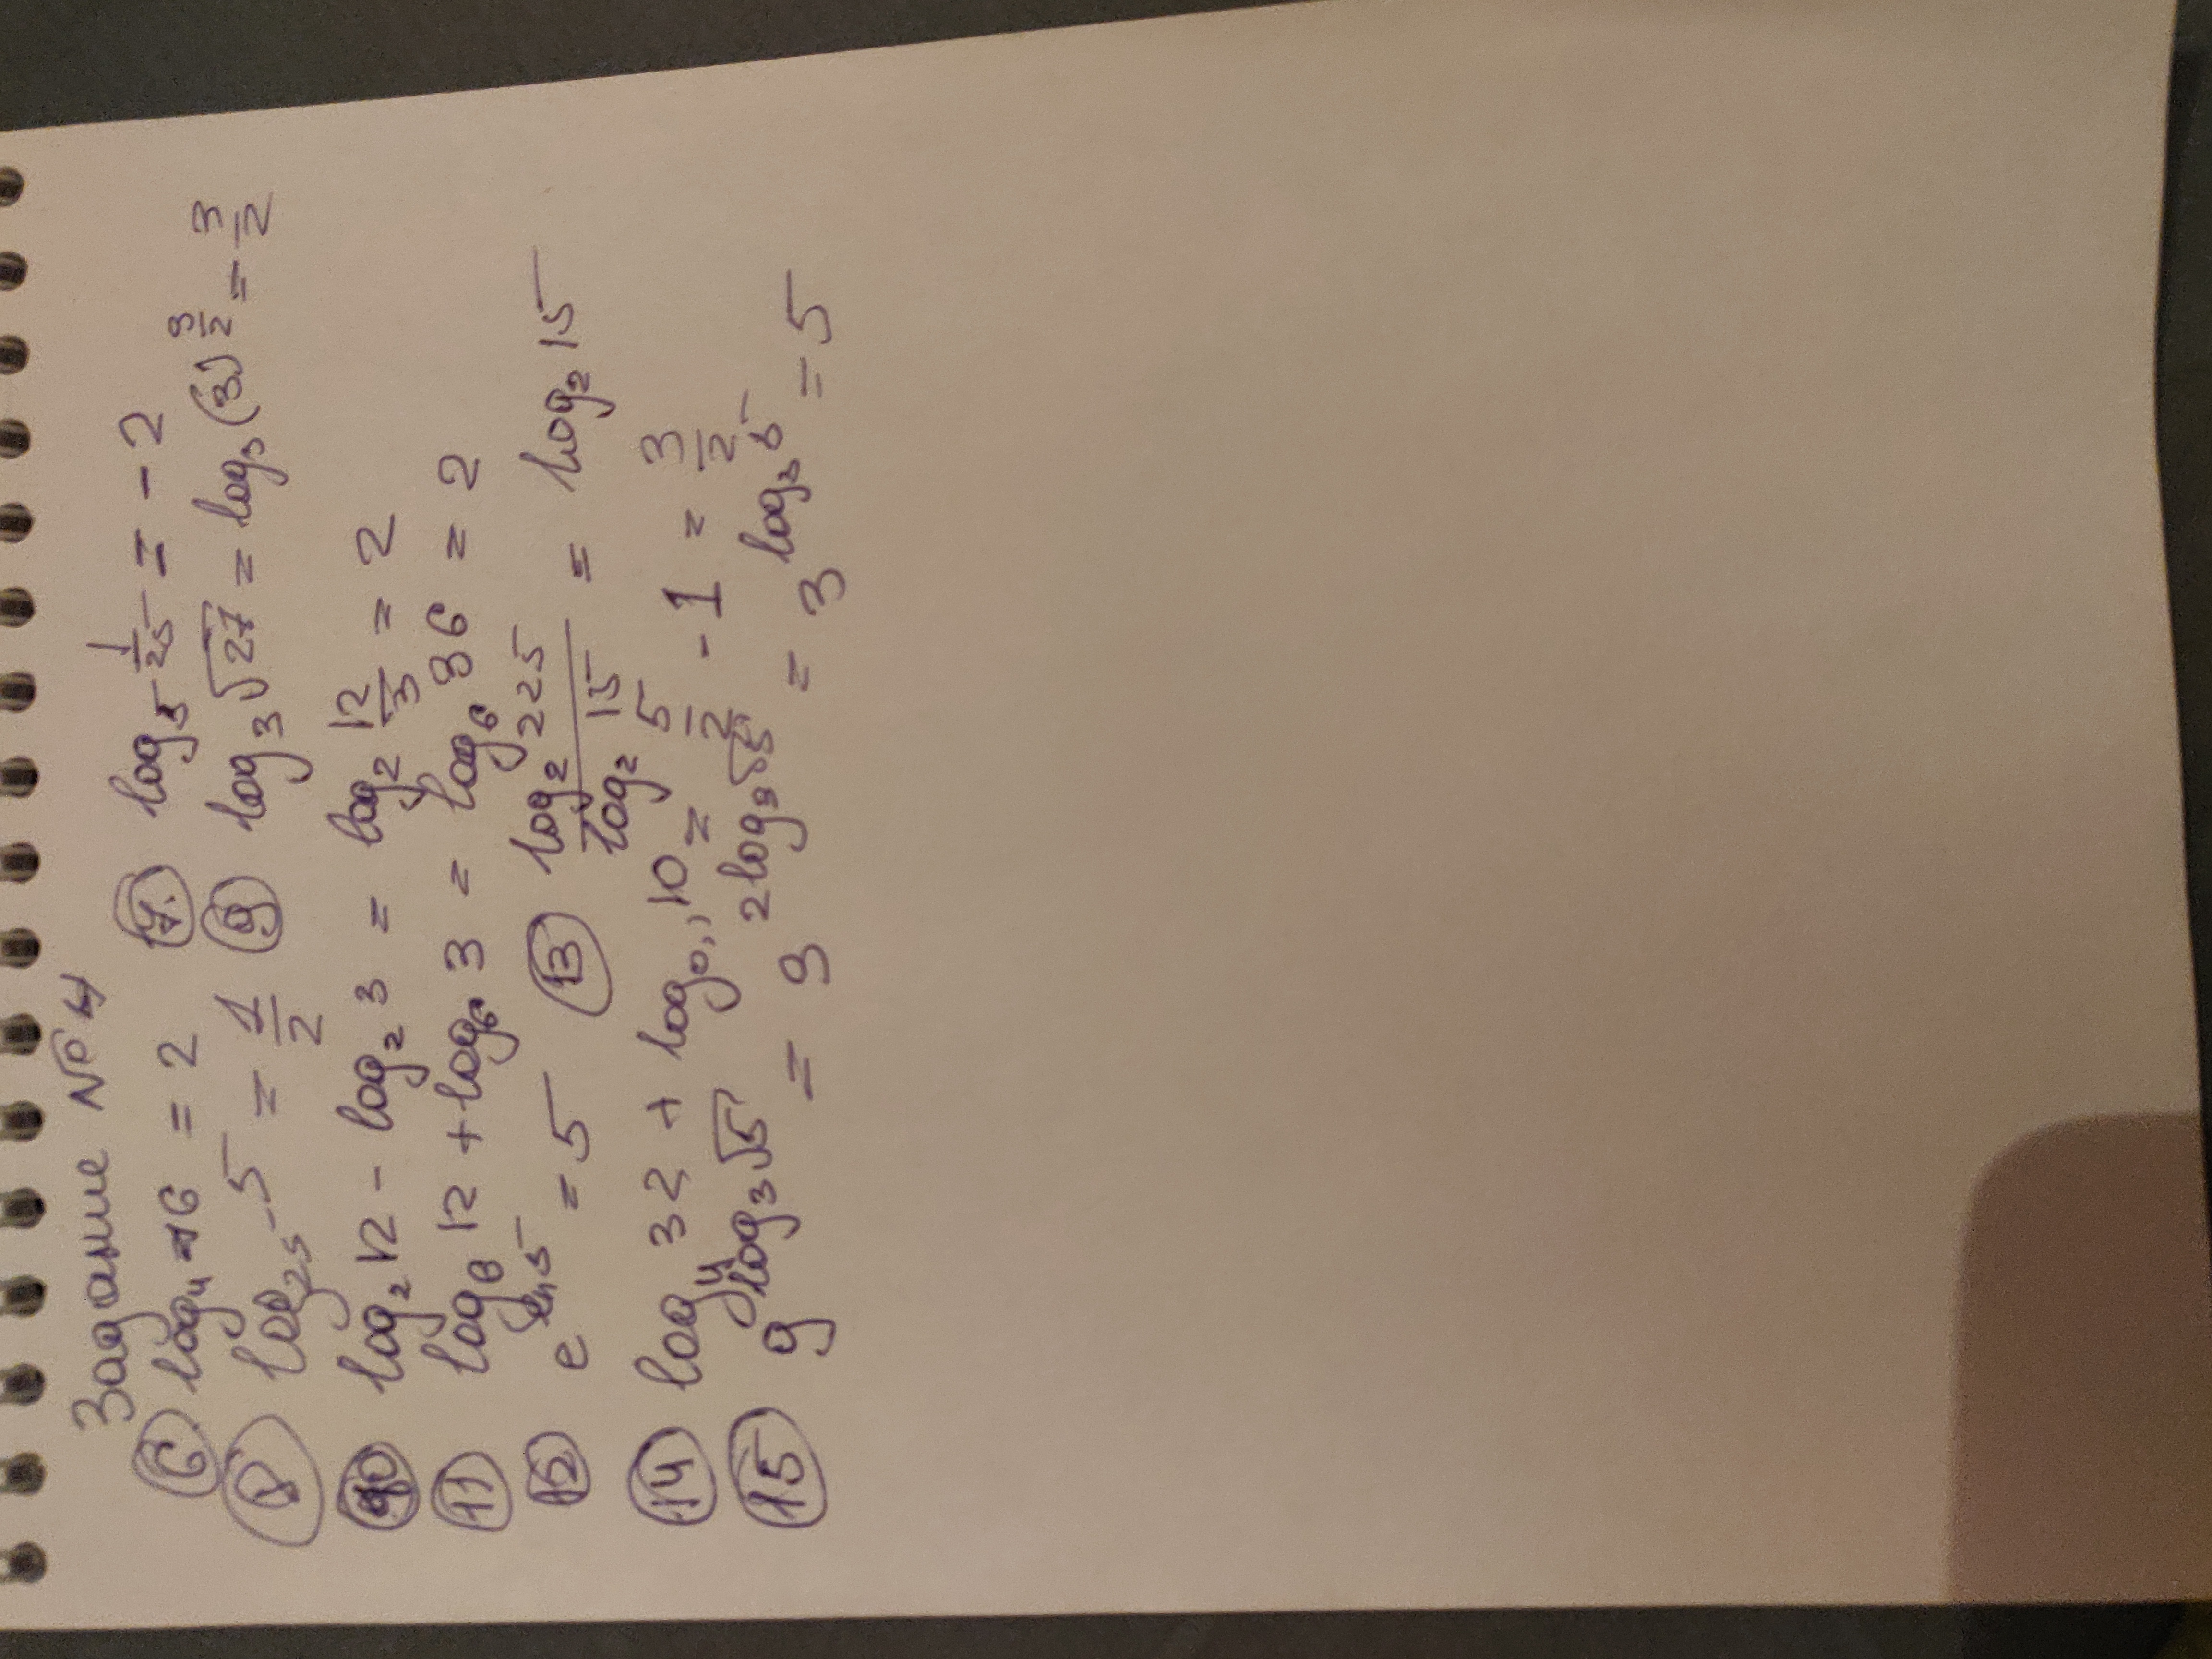 Задание №4
6. log₄ 16 = 2 7. log₅ 1/25 = -2
8 log₂₅ 5 = 1/2 9 log₃ √27 = log₃ (3)^(3/2) = 3/2
10 log₂ 12 - log₂ 3 = log₂ 12/3 = 2
11 log₆ 12 + log₆ 3 = log₆ 36 = 2
12 e^(ln 5) = 5 13 log₂ 225 / log₂ 15 = log₂ 15
14 log₄ 32 + log₀,₁ 10 = 5/2 - 1 = 3/2
15 9^(log₃ √5) = 3^(2 log₃ √5) = 3^(log₃ 5) = 5